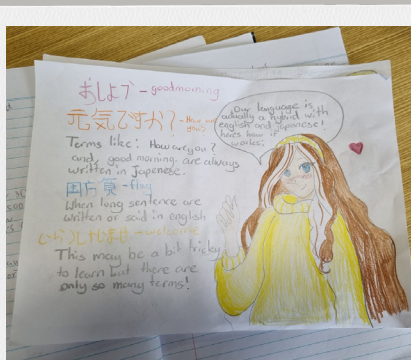 おしよブ - goodmorning
元気ですか? - How are you?
Terms like: How are you?
and, good morning. are always
written in Japenese.
- flag
When long sentence are
written or said in english
- welcome
This may be a bit tricky
to learn but there are
only so many terms!
Our language is
actually a hybrid with
english and japanese!
here's how it
works: